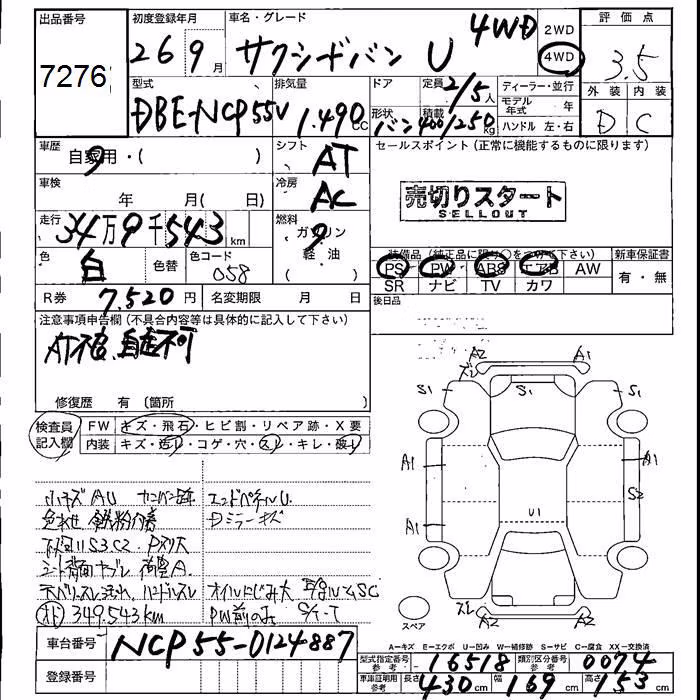 出品番号
7276
初度登録年月
26 9月
車名・グレード
サクシードバン U 4WD
2WD
4WD
評価点
3.5
外装 内装
D C
型式
DBE-NCP55V
排気量
1.490 CC
ドア 定員 2/5人
形状 バン 積載 400/250 kg
ディーラー・並行
モデル年式 年
ハンドル 左・右
車歴
自家用・( )
シフト
AT
車検
年 月( 日)
冷房
AC
走行
34万9千543 km
燃料
ガソリン
軽・油
色
白
色替
色コード
058
R券 7.520円 名変期限 月 日
セールスポイント(正常に機能するものに限ります)
売切りスタート
SELLOUT
装備品(純正品に限り○をつけて下さい)
PS PW ABS エアB AW
SR ナビ TV カワ
新車保証書
有・無
後日品
注意事項申告欄(不具合内容等は具体的に記入して下さい)
AT不良、自走不可
修復歴 有(箇所
検査員記入欄
FW キズ・飛石・ヒビ割・リペア跡・X要
内装 キズ・汚レ・コゲ・穴・スレ・キレ・破レ
小キズ AU
エンドパネルU.
色あせ 鉄粉付着
Dミラーキズ
下廻りS3C2.
シート背面ヤブレ 荷室A.
天バリスレ汚れ ハンドルスレ オイルにじみ大
349.543km PW前のみ
A2 A1
ズレ
S1 S1 S1
A1 A1
S2
A1
U1
ズレ
A2 A2
スペア
A=キズ E=エクボ U=凹み W=補修跡 S=サビ C=腐食 XX=交換済
車台番号 NCP55-0124887
登録番号
型式指定番号 参考 16518 類別区分番号 参考 0074
車庫証明用 参考 長さ 430cm 幅 169cm 高さ 153cm